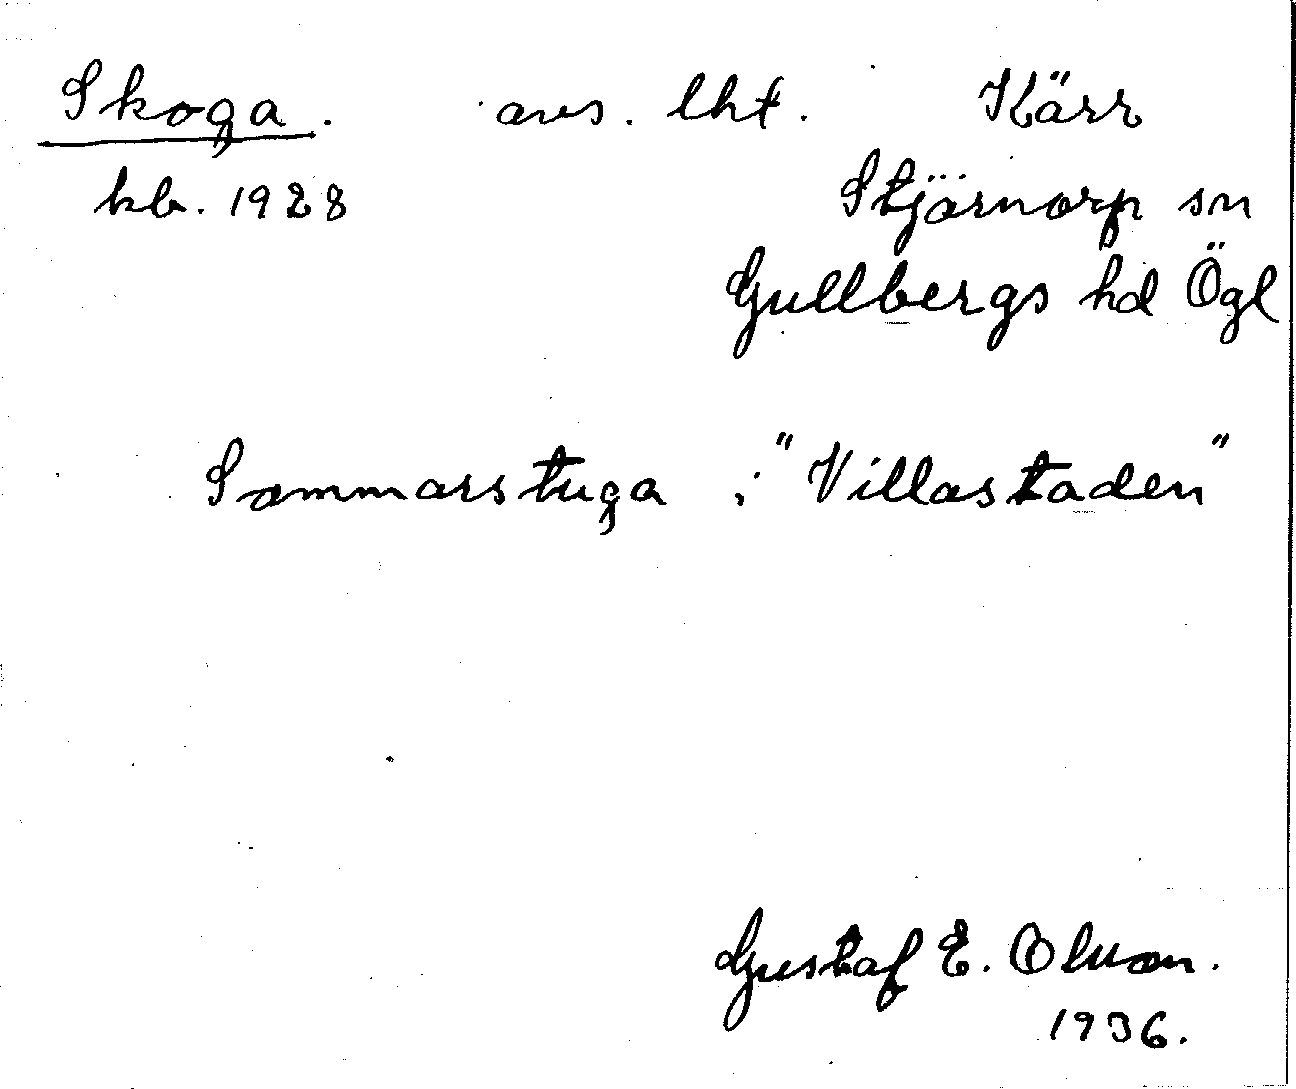 Skoga. avs. lht. Kärr
kb. 1928 Stjärnorp sn
Gullbergs hd Ögl
Sommarstuga i "Villastaden"
Gustaf E. Olsson.
1936.